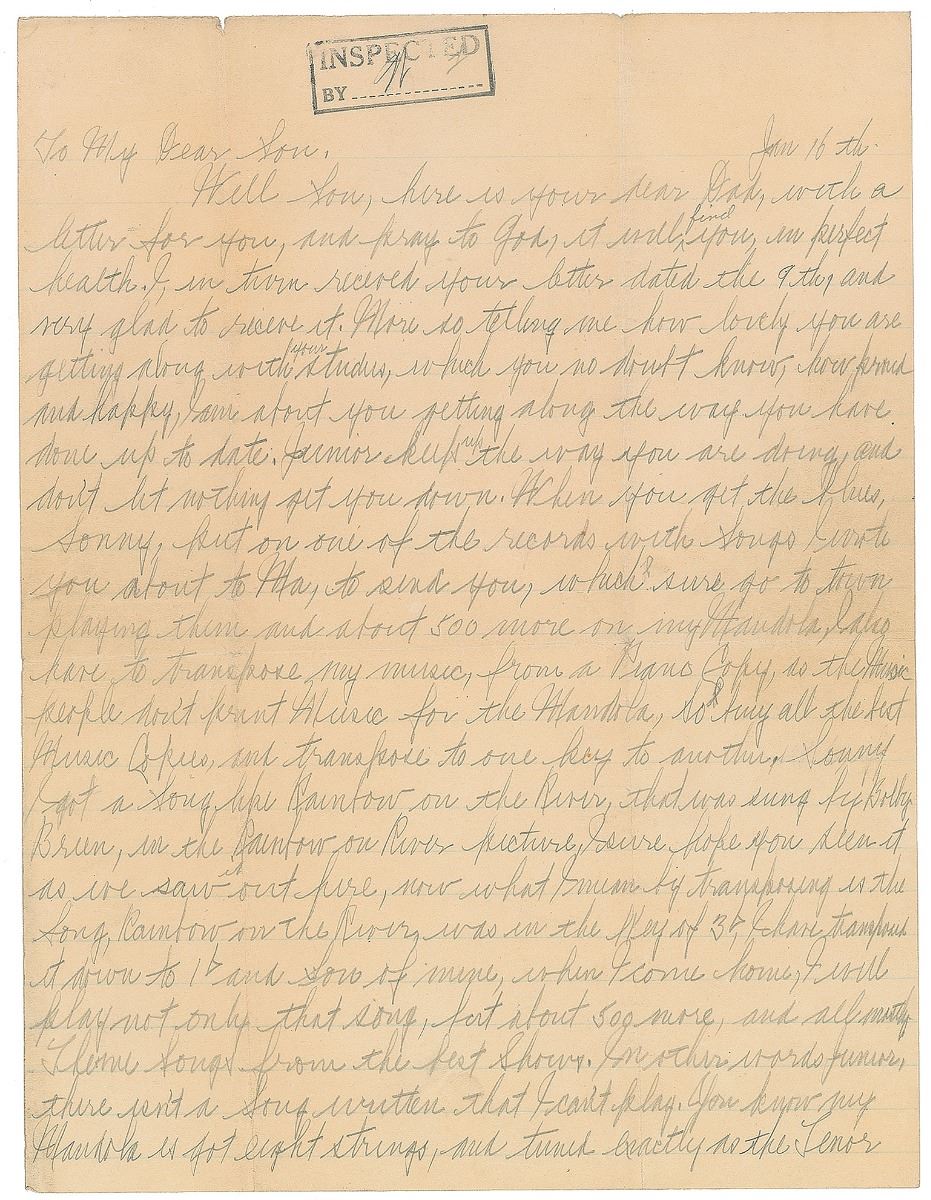 INSPECTED
BY
To My Dear Son. Jan 16 th.
Well Son, here is your dear Dad, with a
letter for you, and pray to God, it will find you, in perfect
health. I, in turn receved your letter dated the 9th, and
very glad to receve it. More so telling me how lovely you are
getting along with your studies, which you no doubt know, how proud
and happy, I am about you getting along the way you have
done up to date. Junior keep up the way you are doing, and
don't let nothing get you down. When you get the blues,
Sonny, put on one of the records with Songs I wrote
you about to Ma, to send you, which I sure go to town
playing them and about 500 more on my Mandola, I also
have to transpose my music, from a Piano Copy, as the Music
people don't print Music for the Mandola, so I buy all the best
Music Copies, and transpose to one key to another. Sonny
I got a song like Rainbow on the River, that was sung by Bobby
Breen, in the Rainbow on River picture, I sure hope you seen it
as we saw it out here, now what I mean by transposing is the
Song, Rainbow on the River, was in the Key of 3♭, I have transposed
it down to 1♭ and Son of mine, when I come home, I will
play not only that song, but about 500 more, and all mostly
Theme Songs from the best Shows. In other words Junior,
there isn't a Song written that I can't play. You know my
Mandola is got eight strings, and tuned exactly as the Tenor